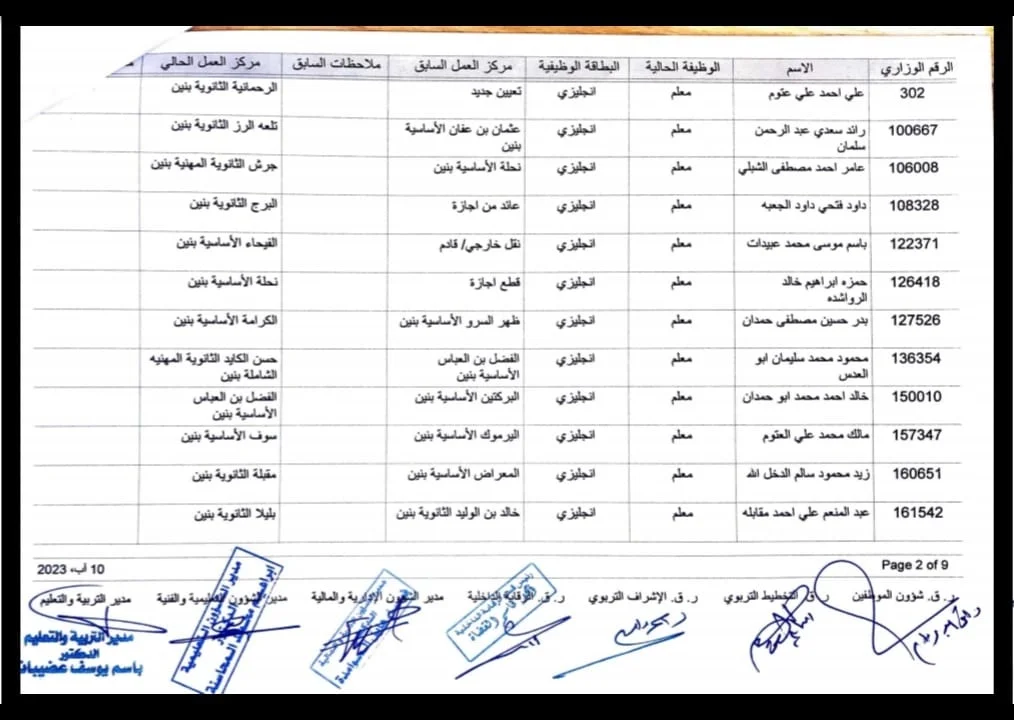 الرقم الوزاري الاسم الوظيفة الحالية البطاقة الوظيفية مركز العمل السابق ملاحظات السابق مركز العمل الحالي
302 علي احمد علي عتوم معلم انجليزي تعيين جديد الرحمانية الثانوية بنين
100667 رائد سعدي عبد الرحمن معلم انجليزي عثمان بن عفان الأساسية تلعه الرز الثانوية بنين
سلمان بنين
106008 عامر احمد مصطفى الشبلي معلم انجليزي نحلة الأساسية بنين جرش الثانوية المهنية بنين
108328 داود فتحي داود الجعبه معلم انجليزي عائد من اجازة البرج الثانوية بنين
122371 باسم موسى محمد عبيدات معلم انجليزي نقل خارجي/ قادم الفيحاء الأساسية بنين
126418 حمزه ابراهيم خالد معلم انجليزي قطع اجازة نحلة الأساسية بنين
الرواشده
127526 بدر حسين مصطفى حمدان معلم انجليزي ظهر السرو الأساسية بنين الكرامة الأساسية بنين
136354 محمود محمد سليمان ابو معلم انجليزي الفضل بن العباس حسن الكايد الثانوية المهنيه
العدس الأساسية بنين الشاملة بنين
150010 خالد احمد محمد ابو حمدان معلم انجليزي البركتين الأساسية بنين الفضل بن العباس
الأساسية بنين
157347 مالك محمد علي العتوم معلم انجليزي اليرموك الأساسية بنين سوف الأساسية بنين
160651 زيد محمود سالم الدخل الله معلم انجليزي المعراض الأساسية بنين مقبلة الثانوية بنين
161542 عبد المنعم علي احمد مقابله معلم انجليزي خالد بن الوليد الثانوية بنين بليلا الثانوية بنين
Page 2 of 9 10 آب، 2023
ر. ق. شؤون الموظفين ر. ق. التخطيط التربوي ر. ق. الإشراف التربوي ر. ق. الرقابة الداخلية مدير الشؤون الإدارية والمالية مدير الشؤون التعليمية والفنية مدير التربية والتعليم
مدير التربية والتعليم
الدكتور
باسم يوسف عضيبات